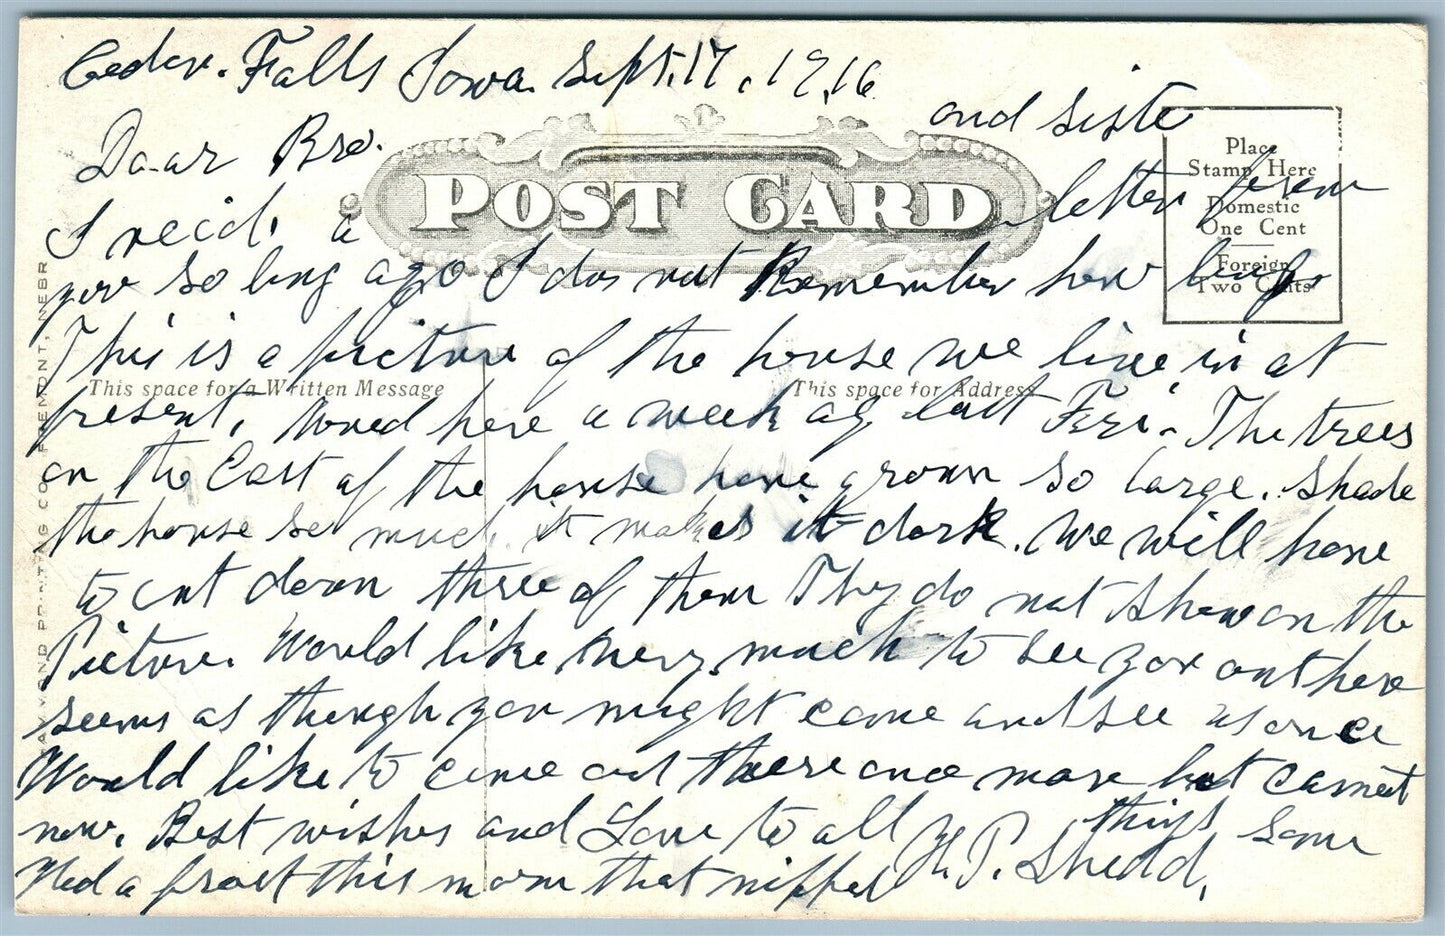 Cedar. Falls Iowa. Sept. 17, 1916
Daar Bro. and siste
POST CARD
Place
Stamp Here
Domestic
One Cent
Foreign
Two Cents
I recd. a letter from
you so long ago I dos not Remember how long.
This is a picture of the house we live in at
This space for a Written Message
This space for Address
present, Moved here a week ag last Fri. The trees
on the East of the house have grown so large. Shade
the house so much it makes it dark. We will have
to cut down three of them They do not Show on the
Picture. Would like very much to see you out here
seems as though you might come and see us once
Would like to come out there once more but cannot
now. Best wishes and Love to all H. P. Shedd.
Had a frost this morn that nipped things some
PRINTING CO., FREMONT, NEBR